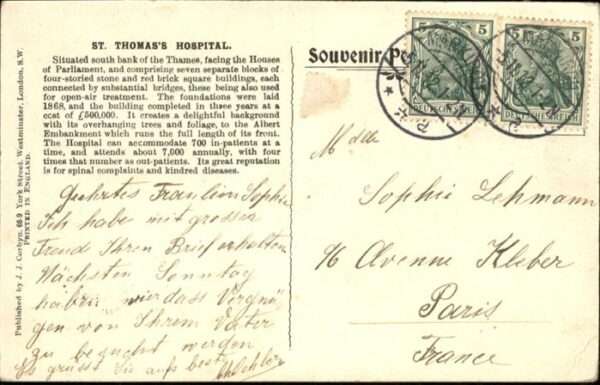 ST. THOMAS'S HOSPITAL.
Situated south bank of the Thames, facing the Houses
of Parliament, and comprising seven separate blocks of
four-storied stone and red brick square buildings, each
connected by substantial bridges, these being also used
for open-air treatment. The foundations were laid
1868, and the building completed in three years at a
cost of £500,000. It creates a delightful background
with its overhanging trees and foliage, to the Albert
Embankment which runs the full length of its front.
The Hospital can accommodate 700 in-patients at a
time, and attends about 7,000 annually, with four
times that number as out-patients. Its great reputation
is for spinal complaints and kindred diseases.
Geehrtes Fraulien Sophie
Ich habe mit grosser
Freud Ihren Brief erhalten
Nächsten Sonntag
haben wier dass Vergnü
gen von Ihrem Vater
zu besucht werden
Es grüsst Sie aufs best
Published by J. J. Corbyn, 68-9 York Street, Westminster, London, S.W.
PRINTED IN ENGLAND.
Souvenir Po
5 5
DEUTSCHES REICH
5 5
DEUTSCHES REICH
Mdlle
Sophie Lehmann
96 Avenue Kleber
Paris
France